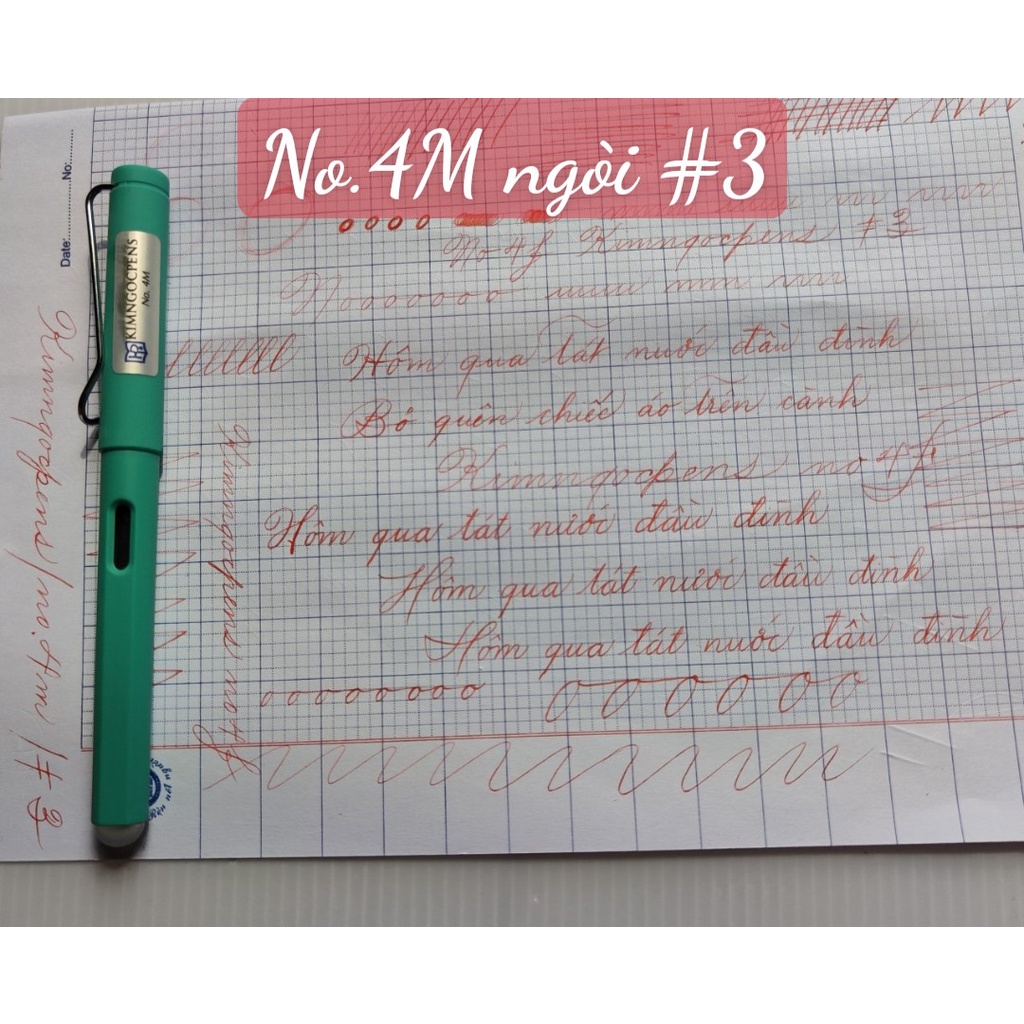 No. 4M ngòi #3
Date:..................No:..........
KIMNGOCPENS
No. 4M
No 4f Kimngocpens #3
Hôm qua tát nước đầu đình
Bỏ quên chiếc áo trên cành
Kimngocpens no 4f
Hôm qua tát nước đầu đình
Hôm qua tát nước đầu đình
Hôm qua tát nước đầu đình
Kimngocpens no 4f
Kimngocpens/no.4m/#3